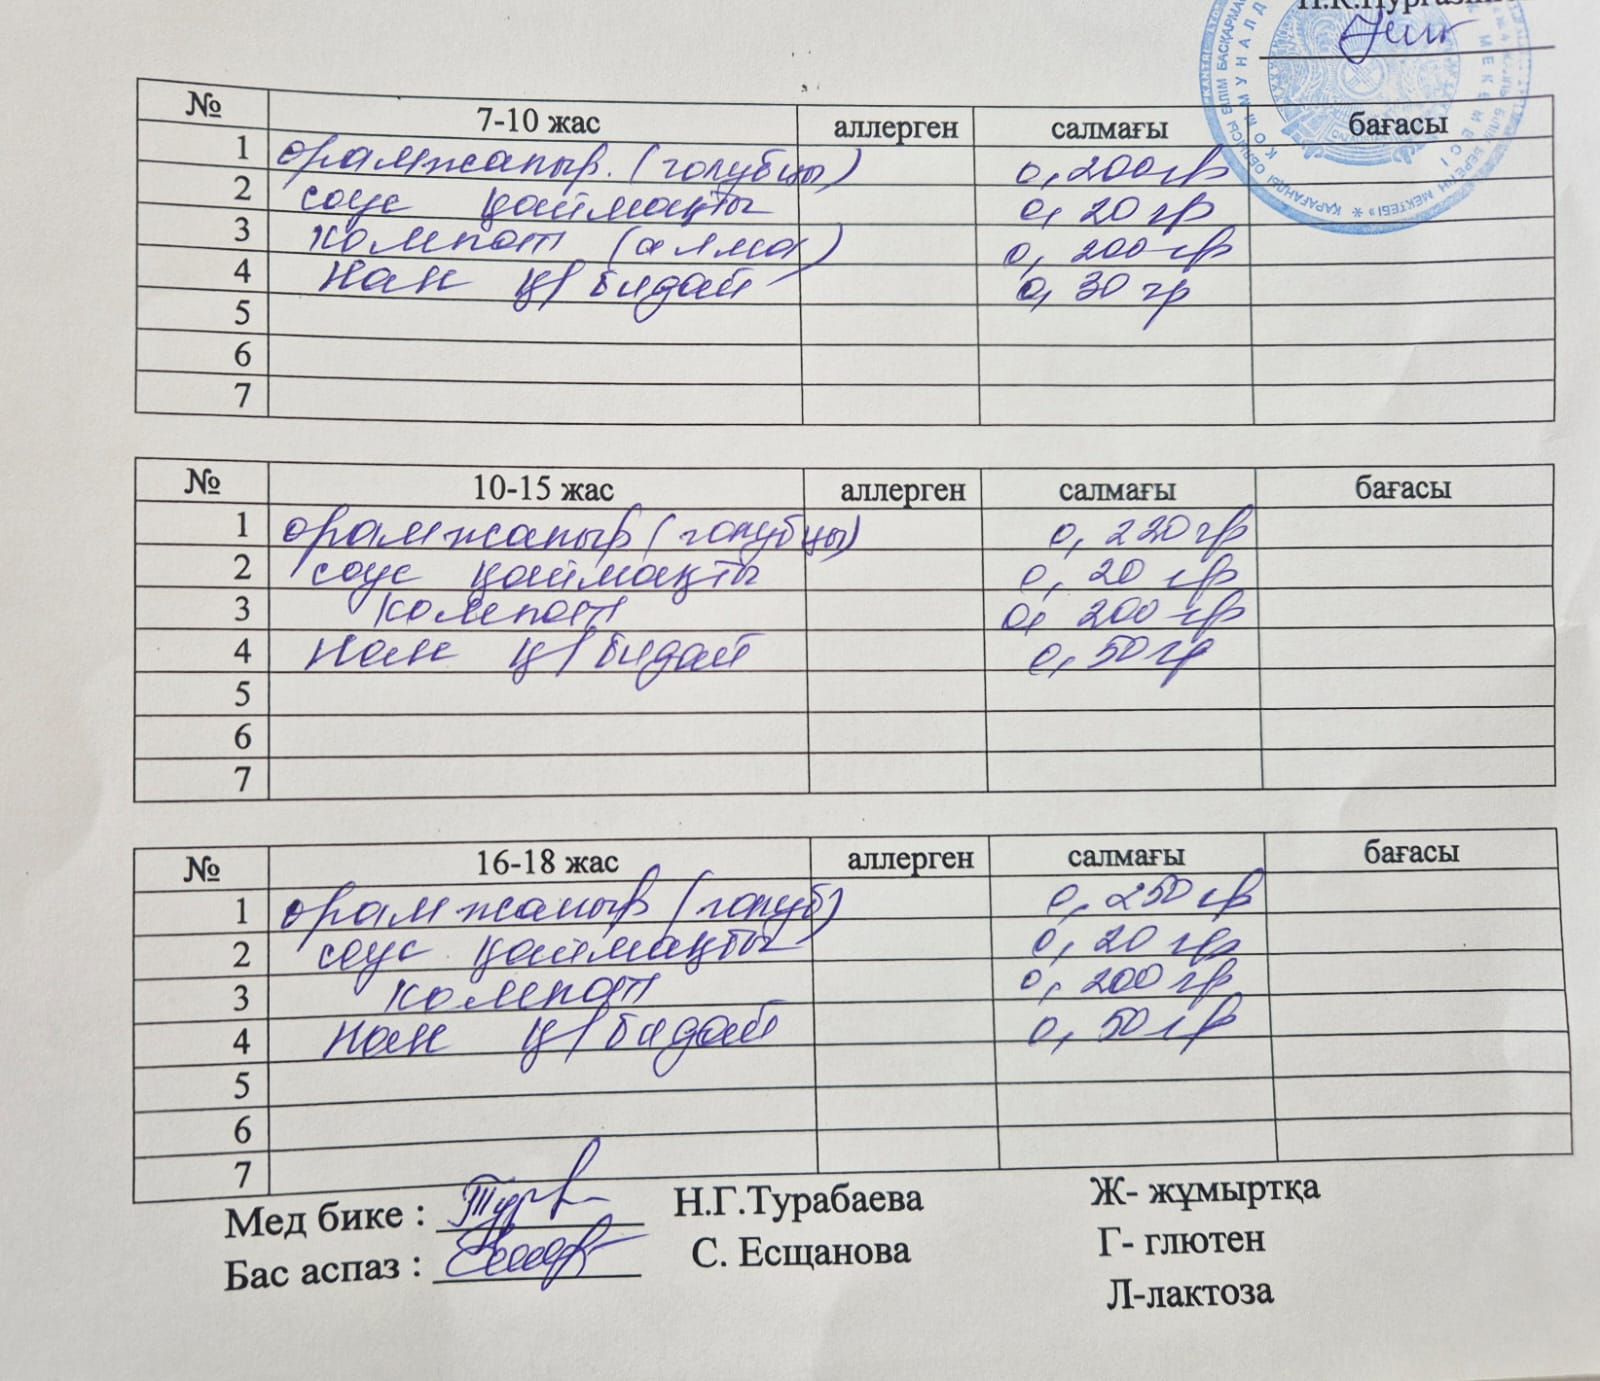 № 7-10 жас аллерген салмағы бағасы
1 орамжапыр. (голубцы) 0,200гр
2 соус қаймақты 0,20 гр
3 компот (алма) 0,200гр
4 нан ц/бидай 0,30 гр
5
6
7
№ 10-15 жас аллерген салмағы бағасы
1 орамжапыр (голубцы) 0,220гр
2 соус қаймақты 0,20 гр
3 компот 0,200 гр
4 нан ц/бидай 0,50гр
5
6
7
№ 16-18 жас аллерген салмағы бағасы
1 орамжапыр (голуб) 0,250 гр
2 соус қаймақты 0,20 гр
3 компот 0,200 гр
4 нан ц/бидай 0,50гр
5
6
7
Мед бике : Н.Г.Турабаева Ж- жұмыртқа
Бас аспаз : С. Есщанова Г- глютен
Л-лактоза